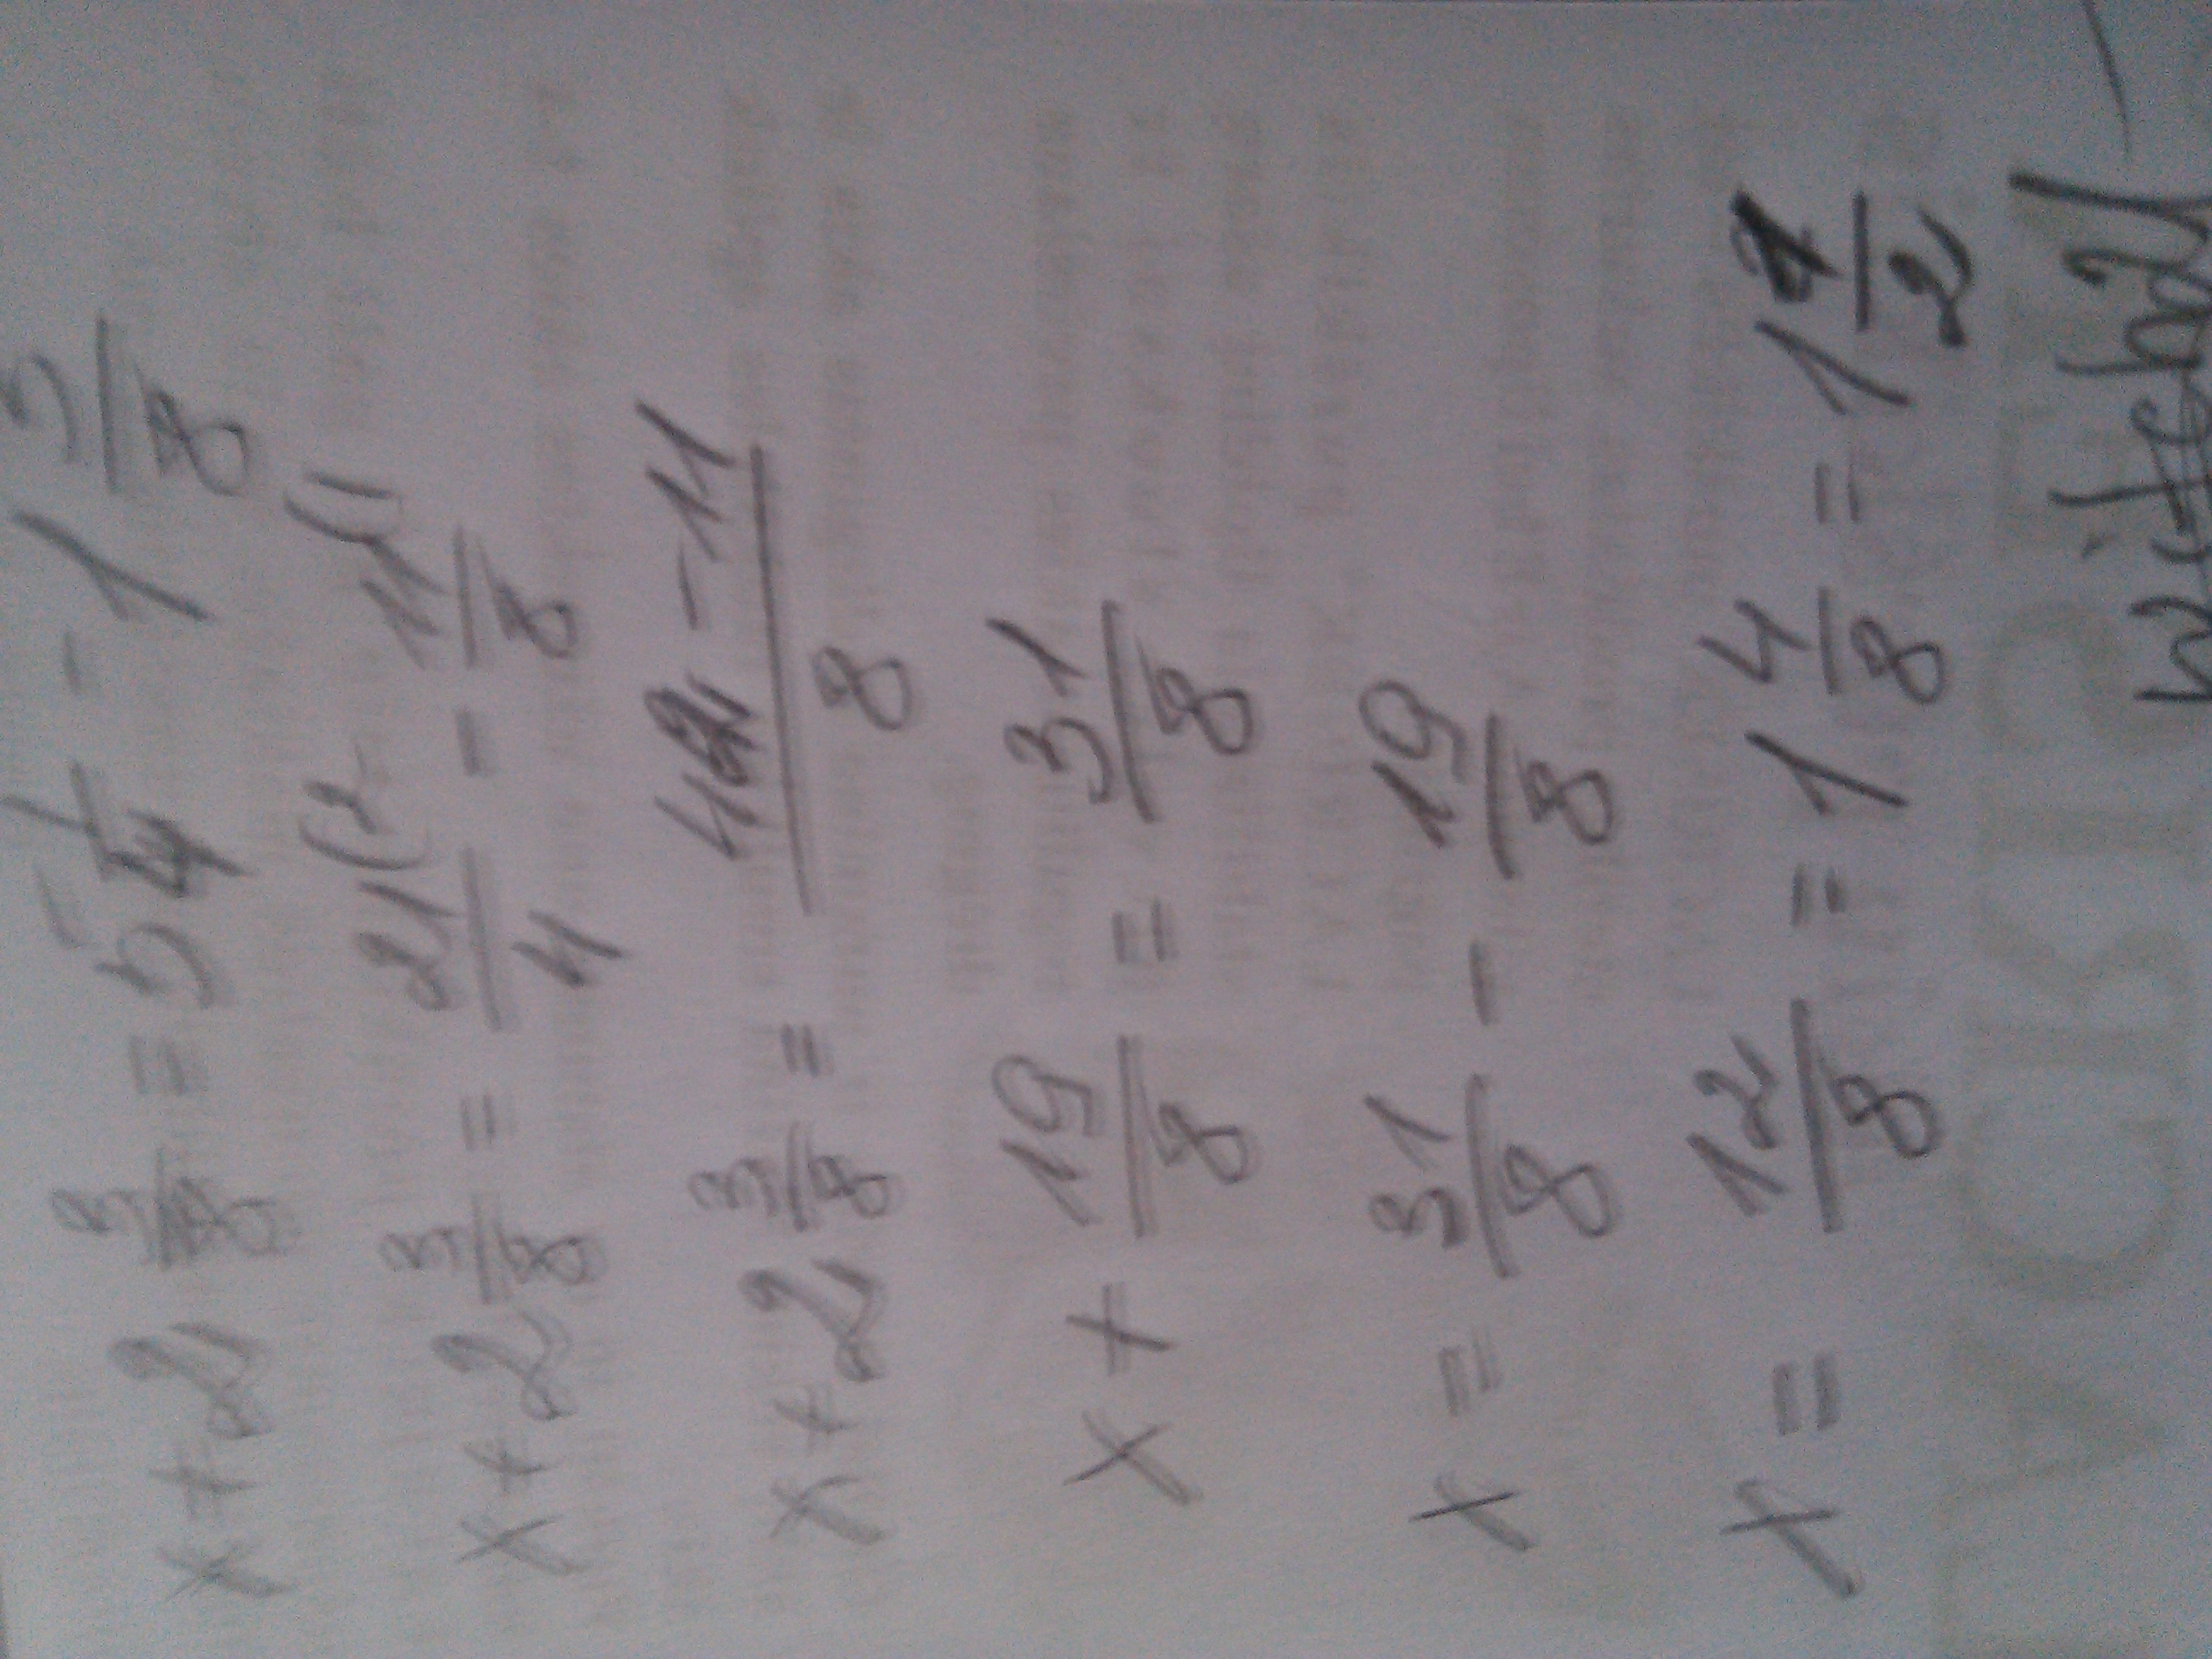 x + 2 3/8 = 5 1/4 - 1 3/8
x + 2 3/8 = 21(2/4 - 11(1/8
x + 2 3/8 = 42 - 11/8
x + 19/8 = 31/8
x = 31/8 - 19/8
x = 12/8 = 1 4/8 = 1 1/2